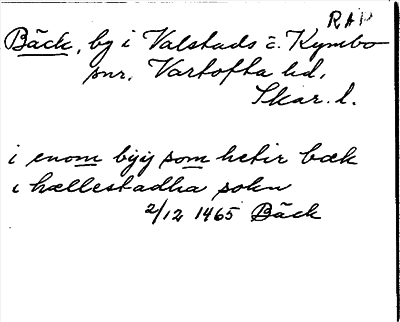 RAP
Bäck, by i Valstads o. Kymbo
snr, Vartofta hd,
Skar. l.
i enom býý som hetir bæk
i hællestadha sokn
2/12 1465 Bäck